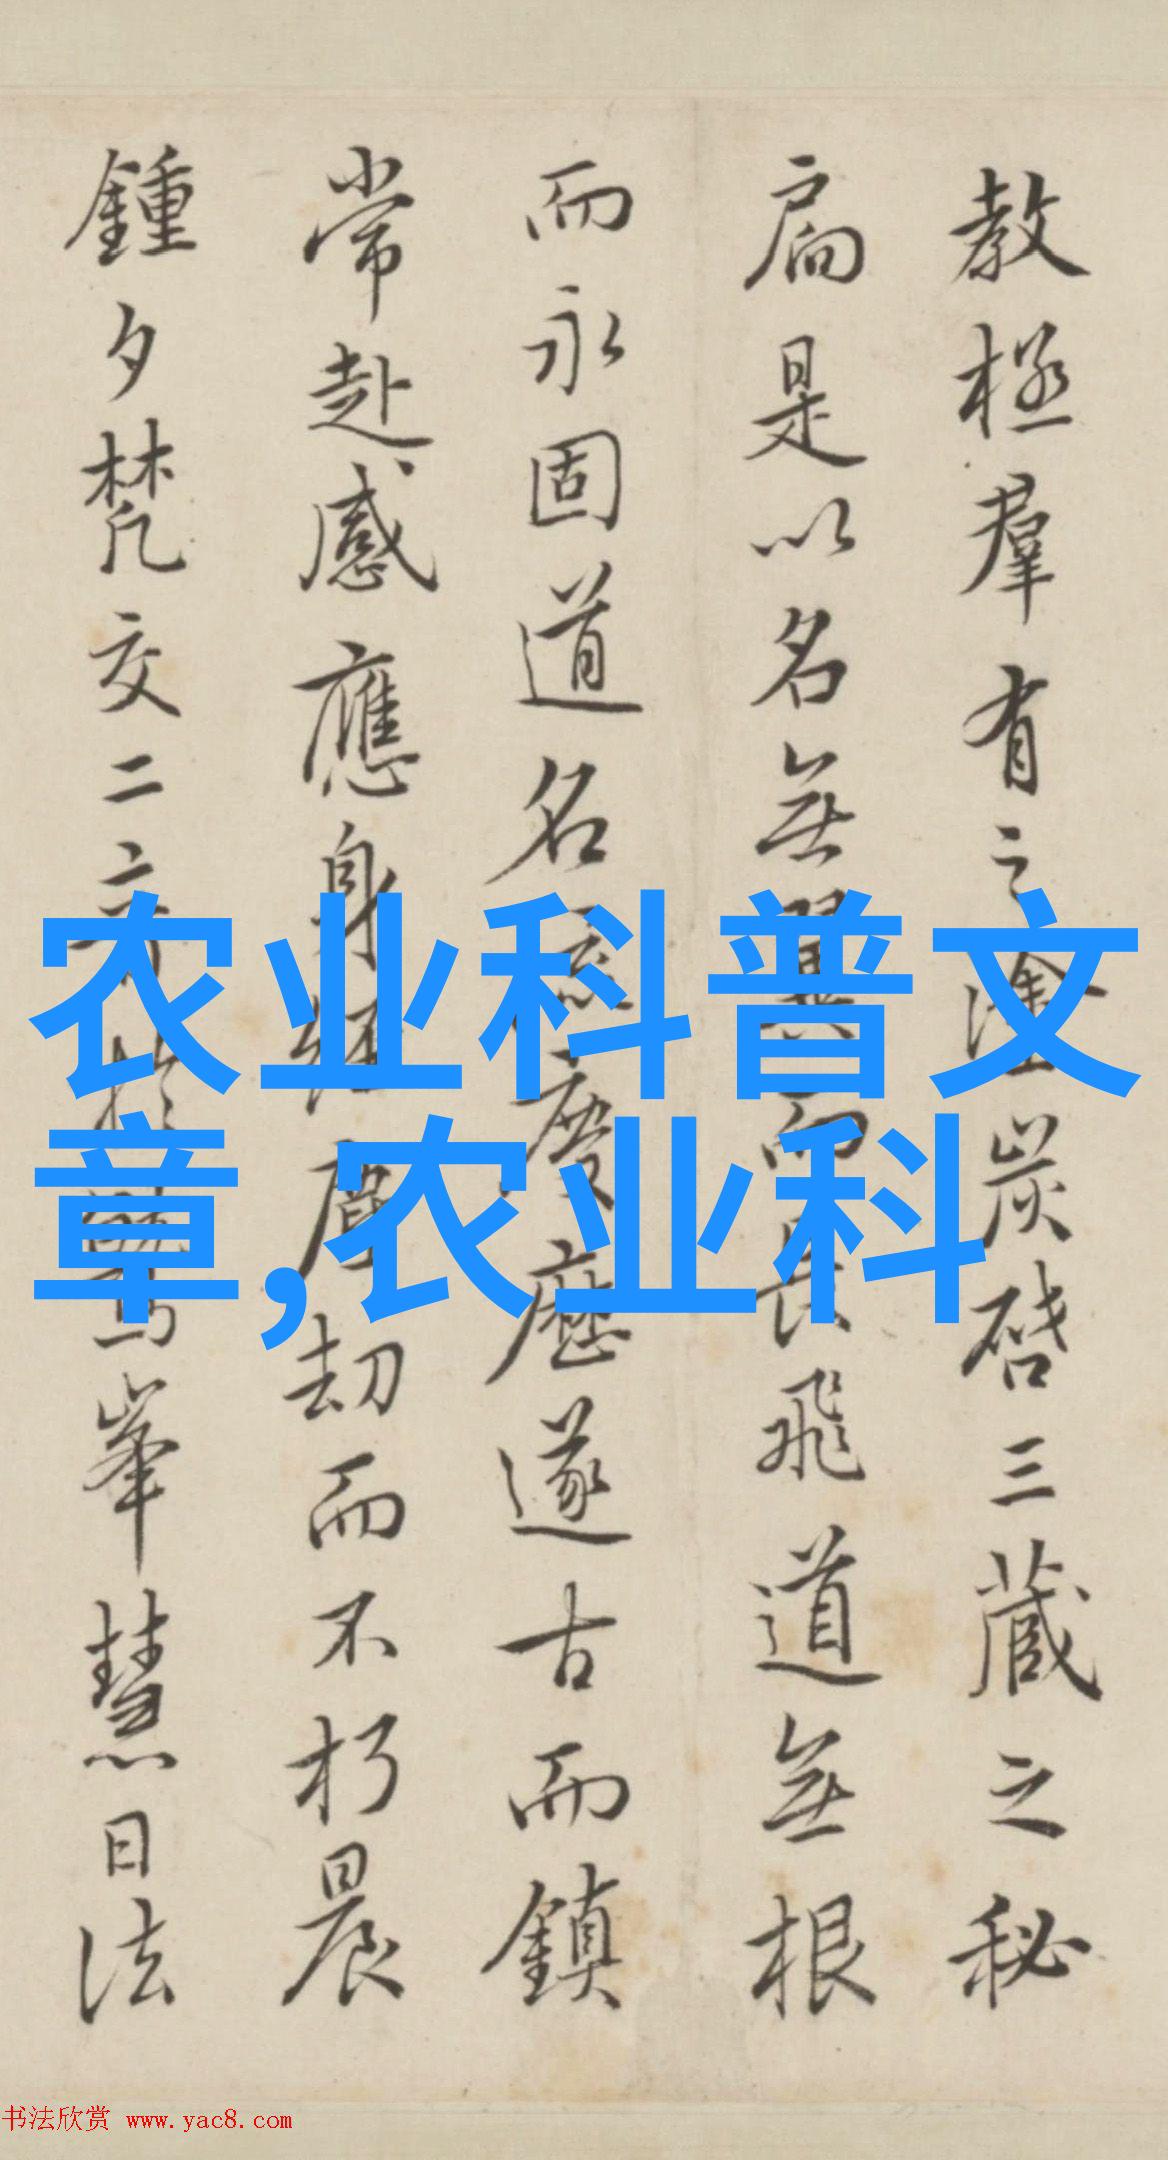 教極羣有之塗炭啓三藏之秘
扃是以名無翼而長飛道無根
而永固道名流慶歷遂古而鎮
常赴感應身經塵劫而不朽晨
鍾夕梵交二音於鷲峯慧日法
农业科普文
章,农业科
书法欣赏 www.yac8.com